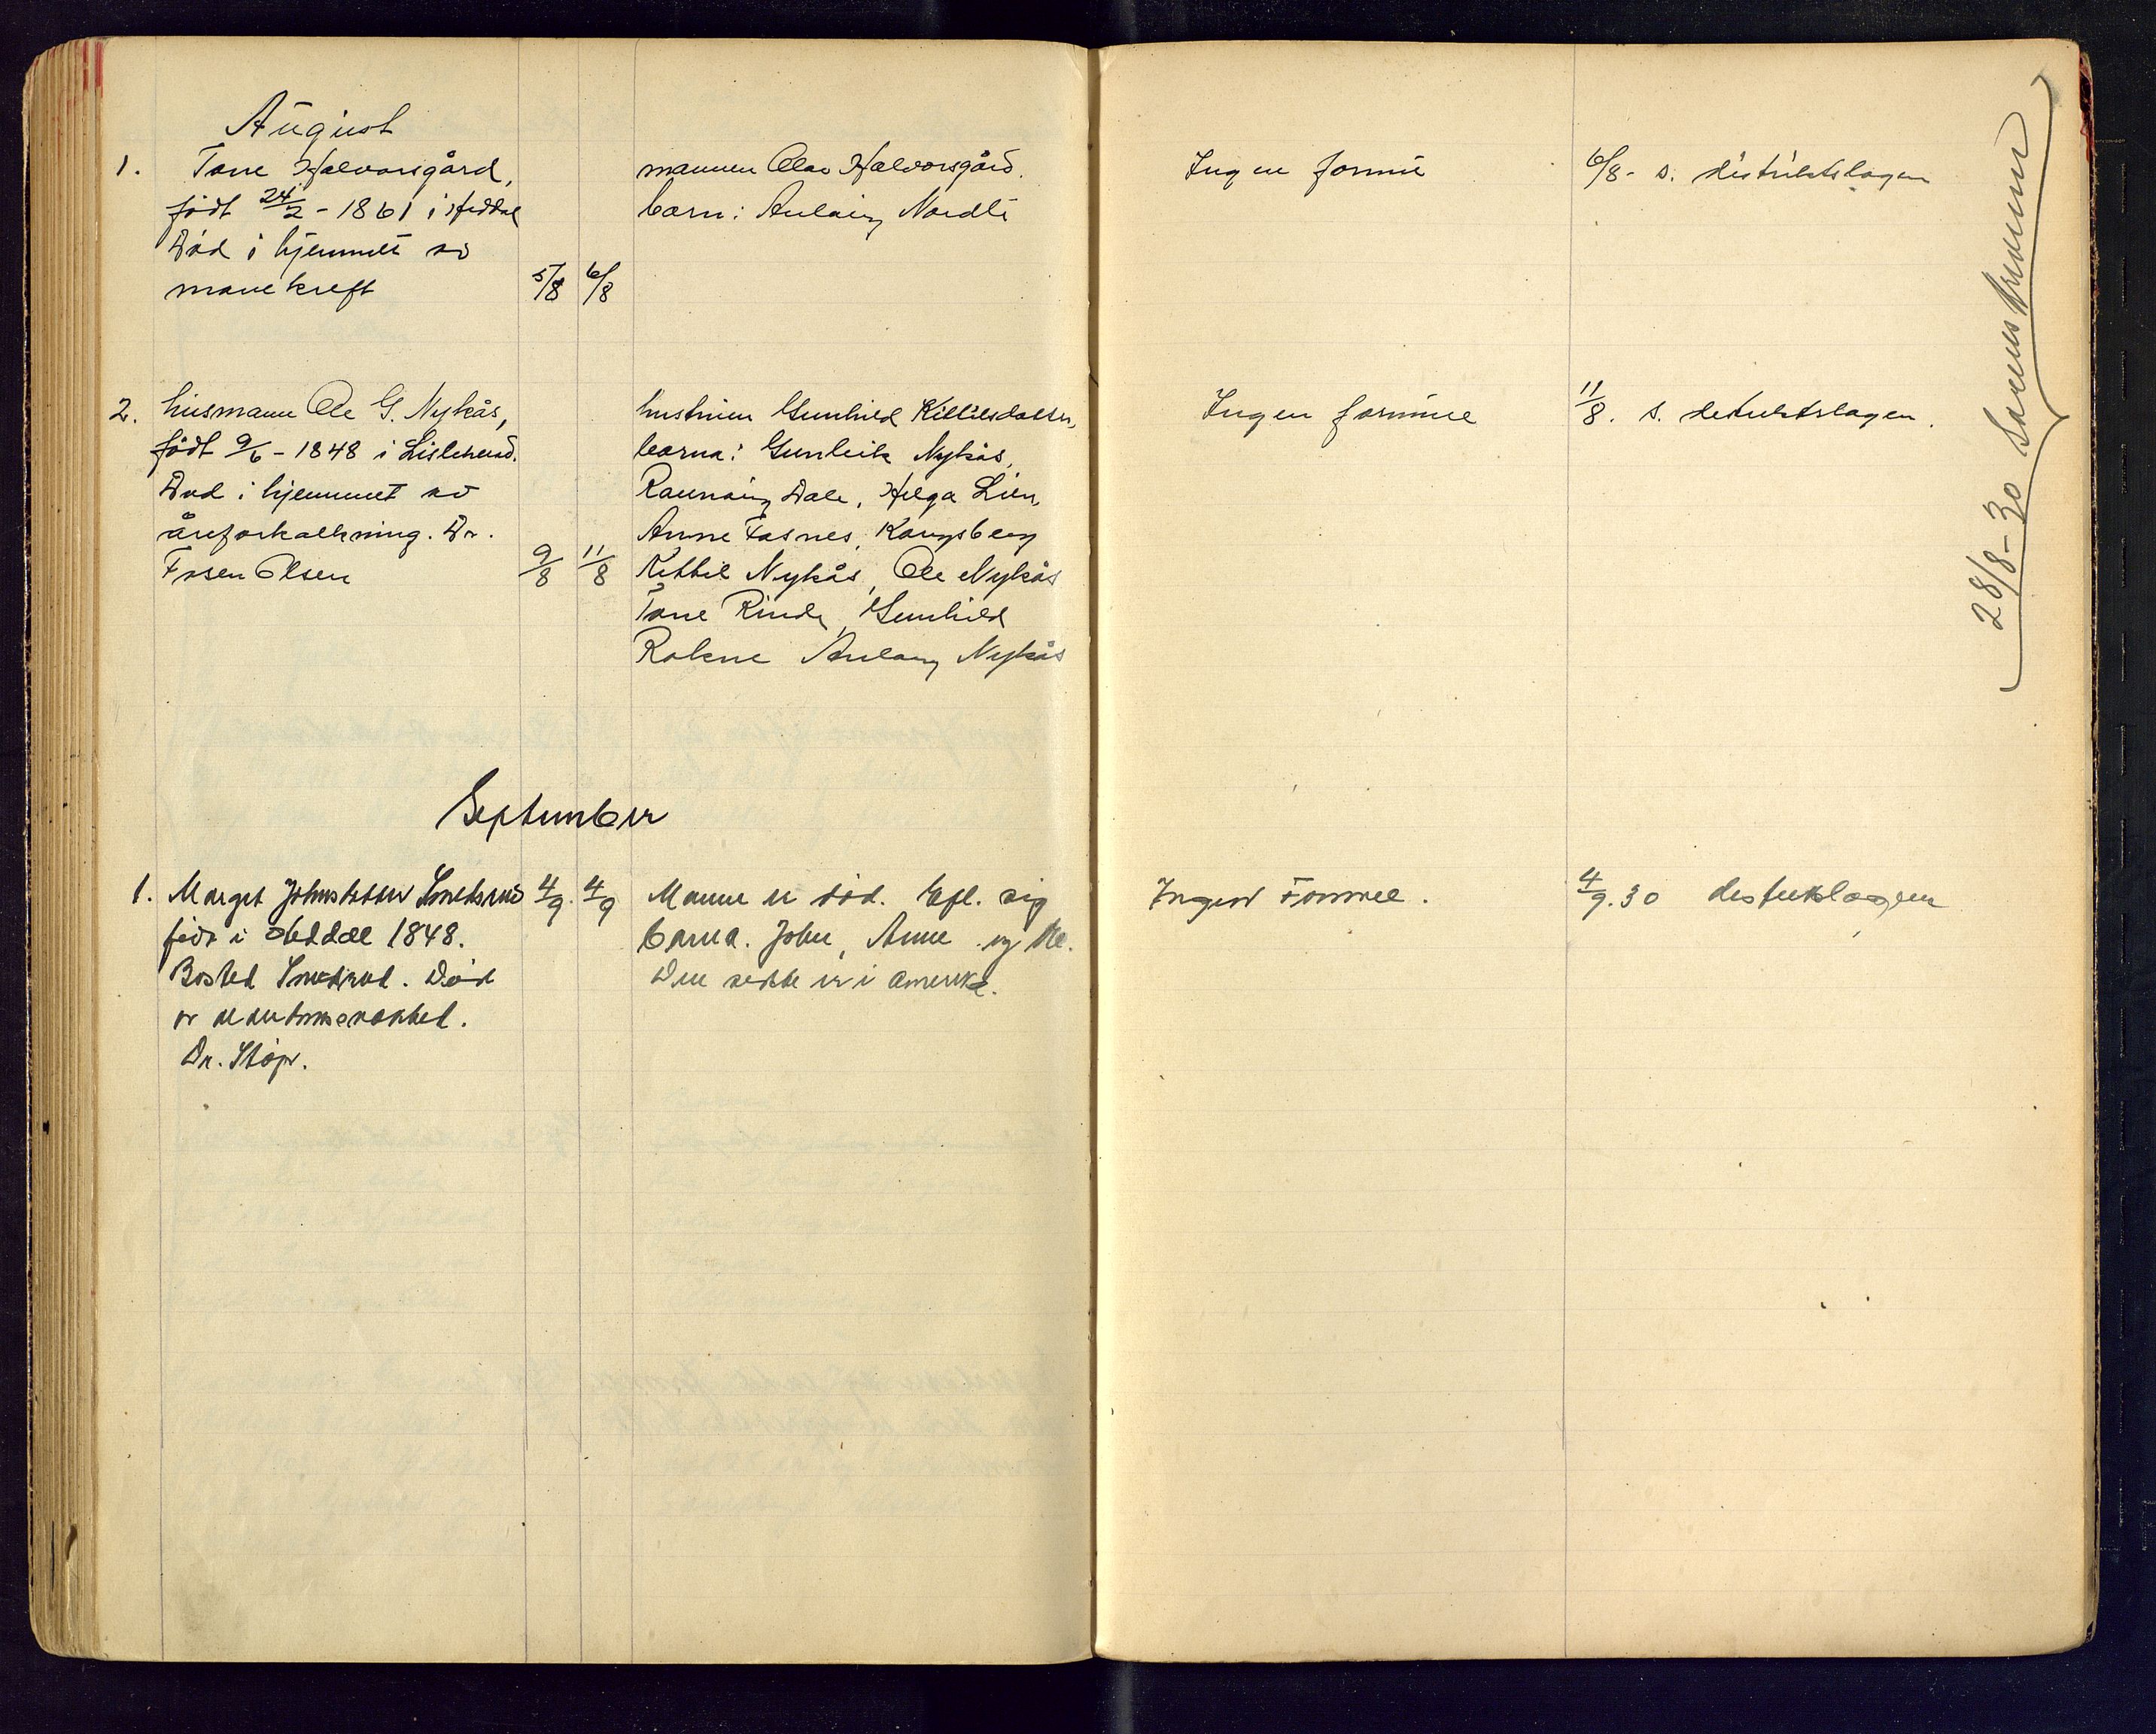 August
1. Tone Halvorsgård,
født 24/2 - 1861 i Heddal
Död i hjemmet av
mavekreft 5/8 6/8
mannen Olav Halvorsgård.
barn: Aslaug Nordli
Ingen formue
6/8 - s. distriktslagen
2. husmann Ole G. Nykås,
født 9/6 - 1848 i Lisleherad.
Död i hjemmet av
åreforkalkning. Dr.
Fosen Olsen 9/8 11/8
hustruen Gunhild Kittilsdatter,
barna: Gunleik Nykås,
Rannaug Dale, Helga Lien,
Anne Fosnes, Kongsberg
Kittil Nykås, Ole Nykås
Tone Rinde, Gunhild
Aslaug Nykås
Ingen formue
11/8. s. distriktslagen.
28/8 - 30
September
1. Marget Johnsdatter 4/9. 4/9
født i Heddal 1848.
Bosted. Död
av alderdomssvakhet.
Dr. Støp.
Manne er död. Efl. sig
barna. John, Anne og
Den sidste er i Amerika.
Ingen Formue.
4/9. 30 distriktslagen